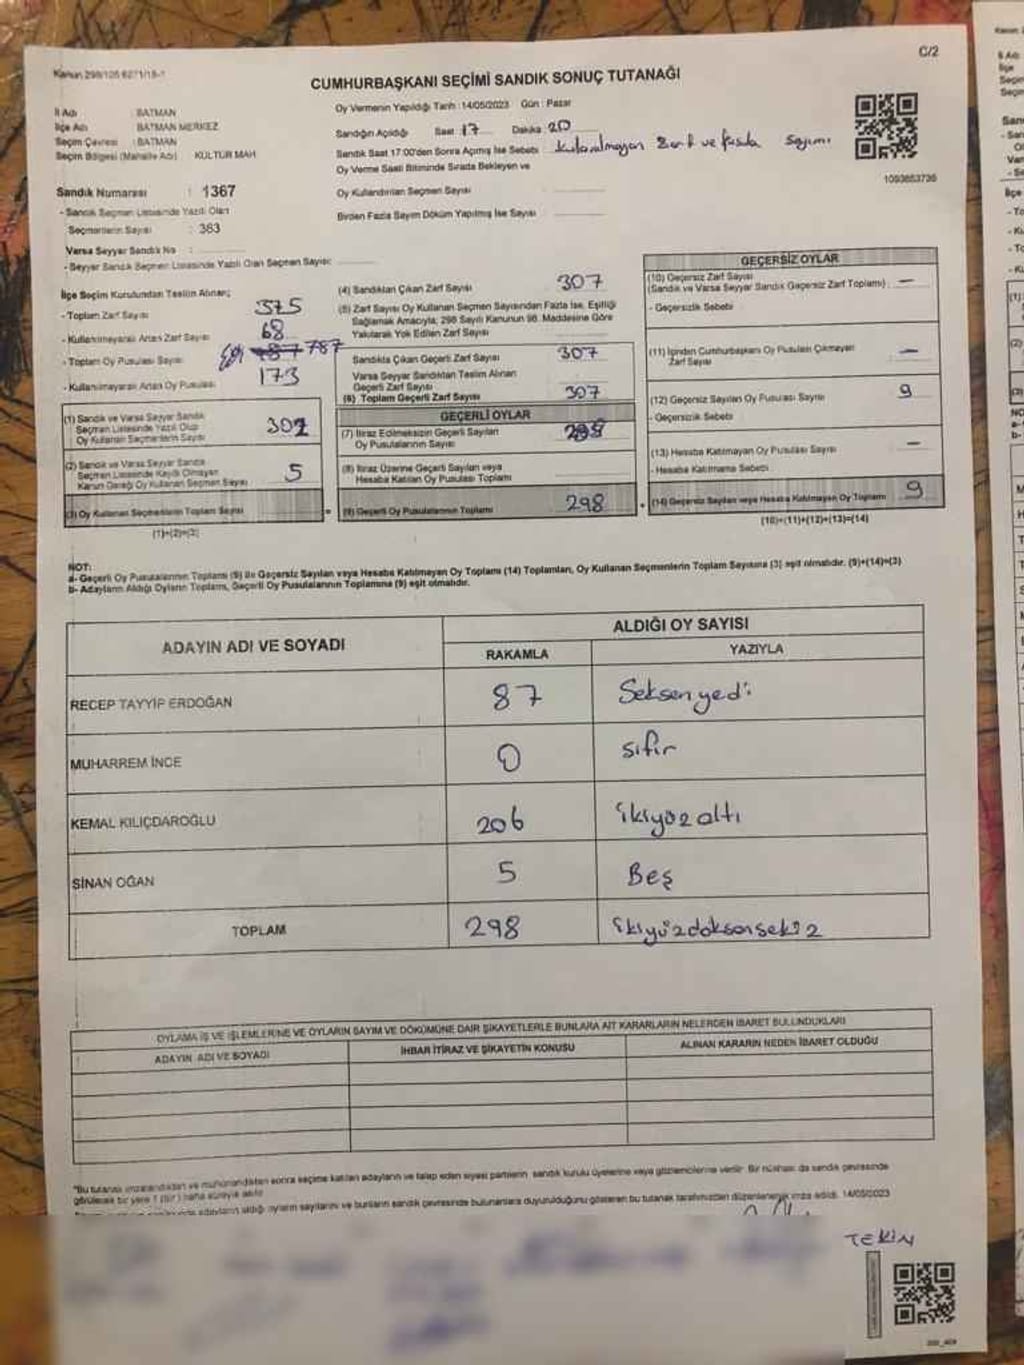 C/2
Kanun 298/105 6271/18-1
CUMHURBAŞKANI SEÇİMİ SANDIK SONUÇ TUTANAĞI
İl Adı : BATMAN
İlçe Adı : BATMAN MERKEZ
Seçim Çevresi : BATMAN
Seçim Bölgesi (Mahalle Adı) KÜLTÜR MAH
Oy Vermenin Yapıldığı Tarih : 14/05/2023 Gün : Pazar
Sandığın Açıldığı Saat 17 Dakika 20
Sandık Saat 17:00'den Sonra Açılmış İse Sebebi Kullanılmayan Zarf ve Pusula Sayımı
Oy Verme Saati Bitiminde Sırada Bekleyen ve
Oy Kullandırılan Seçmen Sayısı
Birden Fazla Sayım Döküm Yapılmış İse Sayısı
1093653736
Sandık Numarası : 1367
- Sandık Seçmen Listesinde Yazılı Olan
Seçmenlerin Sayısı : 383
Varsa Seyyar Sandık No :
- Seyyar Sandık Seçmen Listesinde Yazılı Olan Seçmen Sayısı:
İlçe Seçim Kurulundan Teslim Alınan;
- Toplam Zarf Sayısı 375
- Kullanılmayarak Artan Zarf Sayısı 68
- Toplam Oy Pusulası Sayısı 787
- Kullanılmayarak Artan Oy Pusulası 173
(1) Sandık ve Varsa Seyyar Sandık
Seçmen Listesinde Yazılı Olup
Oy Kullanan Seçmenlerin Sayısı 302
(2) Sandık ve Varsa Seyyar Sandık
Seçmen Listesinde Kaydı Olmayan
Kanun Gereği Oy Kullanan Seçmen Sayısı 5
(3) Oy Kullanan Seçmenlerin Toplam Sayısı
(1)+(2)=(3)
(4) Sandıktan Çıkan Zarf Sayısı 307
(5) Zarf Sayısı Oy Kullanan Seçmen Sayısından Fazla İse, Eşitliği
Sağlamak Amacıyla; 298 Sayılı Kanunun 98. Maddesine Göre
Yakılarak Yok Edilen Zarf Sayısı
Sandıkta Çıkan Geçerli Zarf Sayısı 307
Varsa Seyyar Sandıktan Teslim Alınan
Geçerli Zarf Sayısı
(6) Toplam Geçerli Zarf Sayısı 307
GEÇERLİ OYLAR
(7) İtiraz Edilmeksizin Geçerli Sayılan
Oy Pusulalarının Sayısı 298
(8) İtiraz Üzerine Geçerli Sayılan veya
Hesaba Katılan Oy Pusulası Toplamı
(9) Geçerli Oy Pusulalarının Toplamı 298
GEÇERSİZ OYLAR
(10) Geçersiz Zarf Sayısı
(Sandık ve Varsa Seyyar Sandık Geçersiz Zarf Toplamı) —
- Geçersizlik Sebebi
(11) İçinden Cumhurbaşkanı Oy Pusulası Çıkmayan
Zarf Sayısı —
(12) Geçersiz Sayılan Oy Pusulası Sayısı 9
- Geçersizlik Sebebi
(13) Hesaba Katılmayan Oy Pusulası Sayısı —
- Hesaba Katılmama Sebebi
(14) Geçersiz Sayılan veya Hesaba Katılmayan Oy Toplamı 9
(10)+(11)+(12)+(13)=(14)
NOT:
a- Geçerli Oy Pusulalarının Toplamı (9) ile Geçersiz Sayılan veya Hesaba Katılmayan Oy Toplamı (14) Toplamları, Oy Kullanan Seçmenlerin Toplam Sayısına (3) eşit olmalıdır. (9)+(14)=(3)
b- Adayların Aldığı Oyların Toplamı, Geçerli Oy Pusulalarının Toplamına (9) eşit olmalıdır.
ADAYIN ADI VE SOYADI ALDIĞI OY SAYISI
RAKAMLA YAZIYLA
RECEP TAYYİP ERDOĞAN 87 Seksenyedi
MUHARREM İNCE 0 sıfır
KEMAL KILIÇDAROĞLU 206 ikiyüzaltı
SİNAN OĞAN 5 Beş
TOPLAM 298 ikiyüzdoksansekiz
OYLAMA İŞ VE İŞLEMLERİNE VE OYLARIN SAYIM VE DÖKÜMÜNE DAİR ŞİKAYETLERLE BUNLARA AİT KARARLARIN NELERDEN İBARET BULUNDUKLARI
ADAYIN ADI VE SOYADI İHBAR İTİRAZ VE ŞİKAYETİN KONUSU ALINAN KARARIN NEDEN İBARET OLDUĞU
"Bu tutanak imzalandıktan ve mühürlendikten sonra seçime katılan adayların ve talep eden siyasi partilerin sandık kurulu üyelerine veya gözlemcilerine verilir. Bir nüshası da sandık çevresinde
görülecek bir yere 1 (bir) hafta süreyle asılır.
adayların aldığı oyların sayılarını ve bunların sandık çevresinde bulunanlara duyurulduğunu gösteren bu tutanak tarafımızdan düzenlenerek imza edildi. 14/05/2023
TEKİN